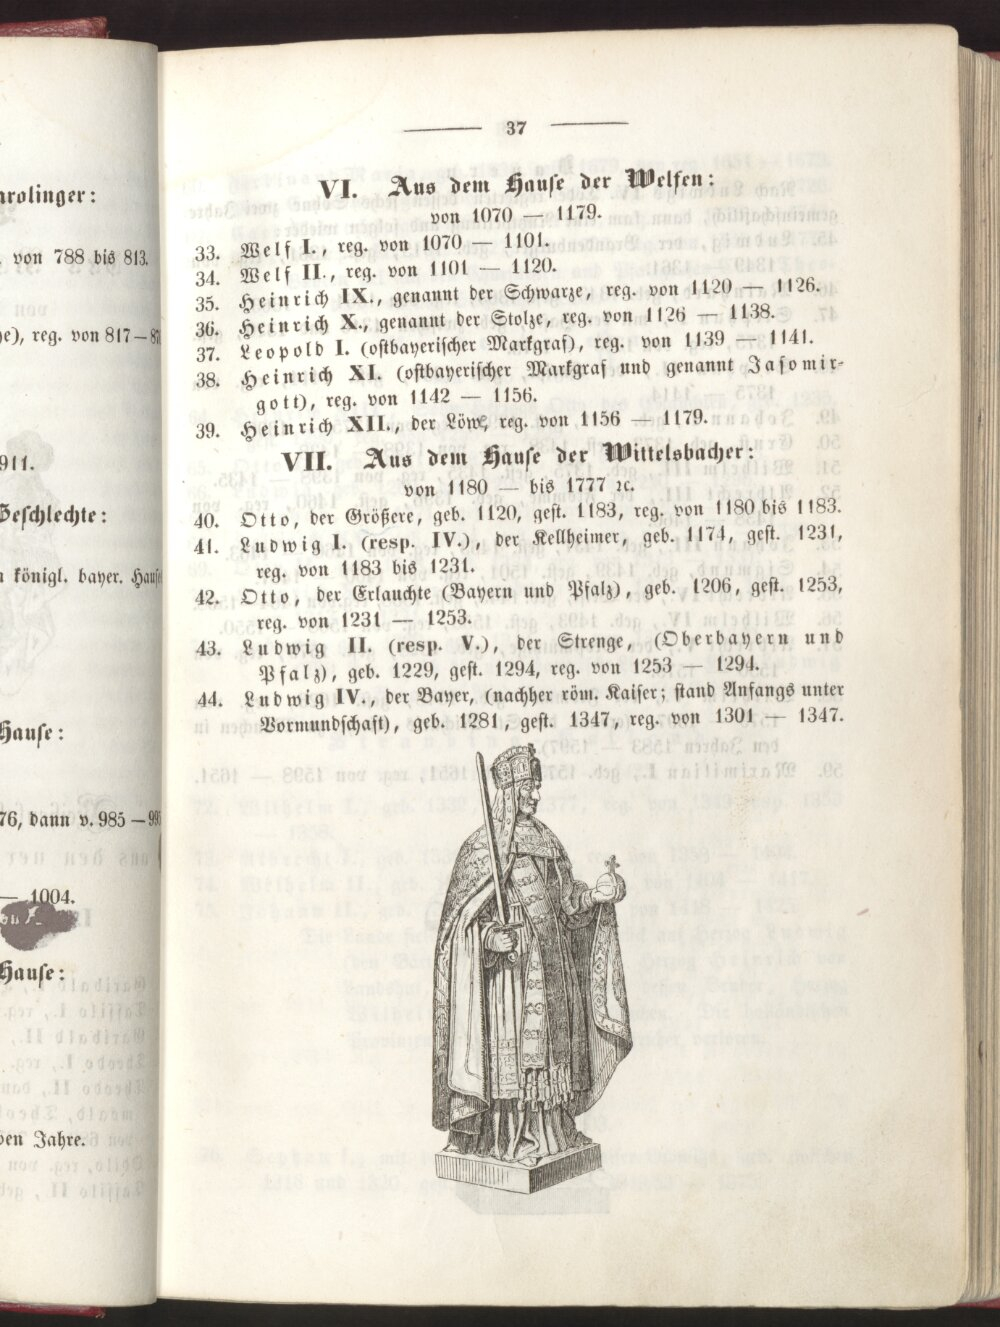 arolinger:
, von 788 bis 813.
reg. von 817—
911.
Geschlechte:
königl. bayer. Haus
Hause:
76, dann v. 985 —
— 1004.
Hause:
Jahre.
37
VI. Aus dem Hause der Welfen:
von 1070 — 1179.
33. Welf I., reg. von 1070 — 1101.
34. Welf II., reg. von 1101 — 1120.
35. Heinrich IX., genannt der Schwarze, reg. von 1120 — 1126.
36. Heinrich X., genannt der Stolze, reg. von 1126 — 1138.
37. Leopold I. (ostbayerischer Markgraf), reg. von 1139 — 1141.
38. Heinrich XI. (ostbayerischer Markgraf und genannt Jasomir-
gott), reg. von 1142 — 1156.
39. Heinrich XII., der Löwe, reg. von 1156 — 1179.
VII. Aus dem Hause der Wittelsbacher:
von 1180 — bis 1777 ꝛc.
40. Otto, der Größere, geb. 1120, gest. 1183, reg. von 1180 bis 1183.
41. Ludwig I. (resp. IV.), der Kellheimer, geb. 1174, gest. 1231,
reg. von 1183 bis 1231.
42. Otto, der Erlauchte (Bayern und Pfalz), geb. 1206, gest. 1253,
reg. von 1231 — 1253.
43. Ludwig II. (resp. V.), der Strenge, (Oberbayern und
Pfalz), geb. 1229, gest. 1294, reg. von 1253 — 1294.
44. Ludwig IV., der Bayer, (nachher röm. Kaiser; stand Anfangs unter
Vormundschaft), geb. 1281, gest. 1347, reg. von 1301 — 1347.